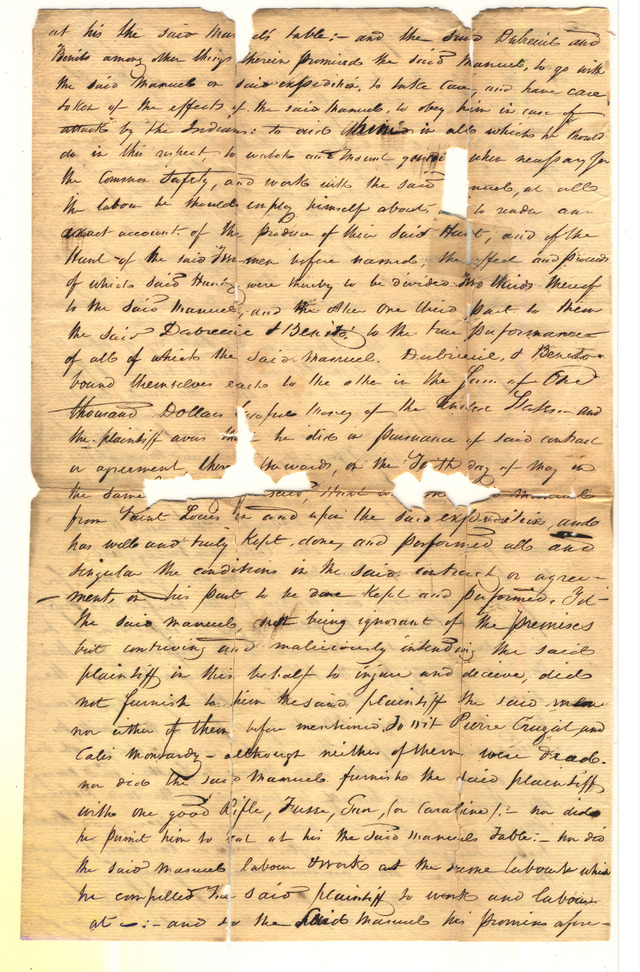 at his the said Manuel's table:- and the said Dubreuil and
Benito among other things therein promised the said Manuel, to go with
the said Manuel on said expedition, to take care, and have care
taken of the effects of the said Manuel, to obey him in case of
attack by the Indians: to aid him in all which he should
do in this respect, to watch and mount when necessary for
the common Safety, and work with the said nuel, at all
the labour he should employ himself about, to render an
exact account of the produce of their said Hunt, and of the
Hunt of the said two men before named, the effect and proceeds
of which said Hunt, were thereby to be divided Two thirds thereof
to the said Manuel, and the other One third part to them
the said Dubreuil & Benito; to the true performance
of all of which the said Manuel. Dubreuil, & Benito
bound themselves each to the other in the Sum of One
thousand Dollars lawful Money of the United States - and
the plaintiff avers that he did in pursuance of said contract
or agreement, wards, on the day of May in
the same said Manuel
from Saint Louis in and upon the said expedition, and
has well and truly Kept, done, and performed all and
singular the conditions in the said contract or agree-
ment, on his part to be done Kept and performed. Yet
the said Manuel not being ignorant of the premises
but contriving and maliciously intending the said
plaintiff in this behalf to injure and deceive, did
not furnish to him the said plaintiff the said men
nor either of them before mentioned, To Wit Pierre and
Calis - although neither of them were dead.
nor did the said Manuel furnish the said plaintiff
with one good Rifle, Fusee, Gun, (or Carabine):- nor did
he permit him to eat at his the said Manuels Table:- nor did
the said Manuel labour & work at the same labour which
he compelled the said plaintiff to work and labour
at -:- and so the said Manuel his promises afore-